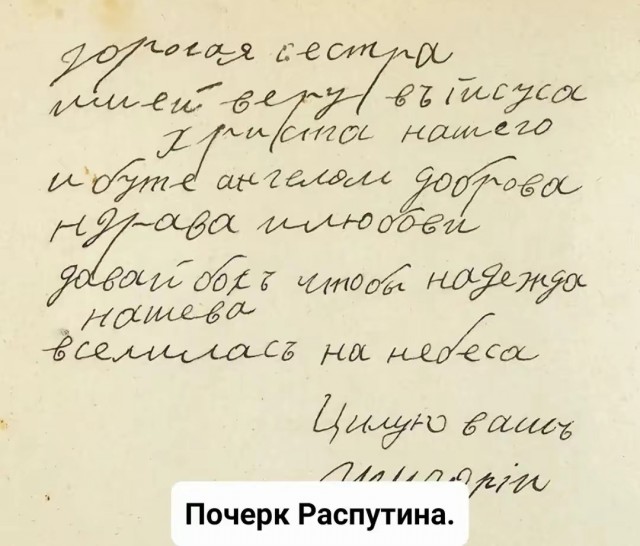 дорогая сестра
имей веру въ Iисуса
христа нашего
и буте ангелом доброва
ндрава и любови
давай бохъ чтобы надежда
нашева
вселиласъ на небеса
Цилую вашъ
Почерк Распутина.